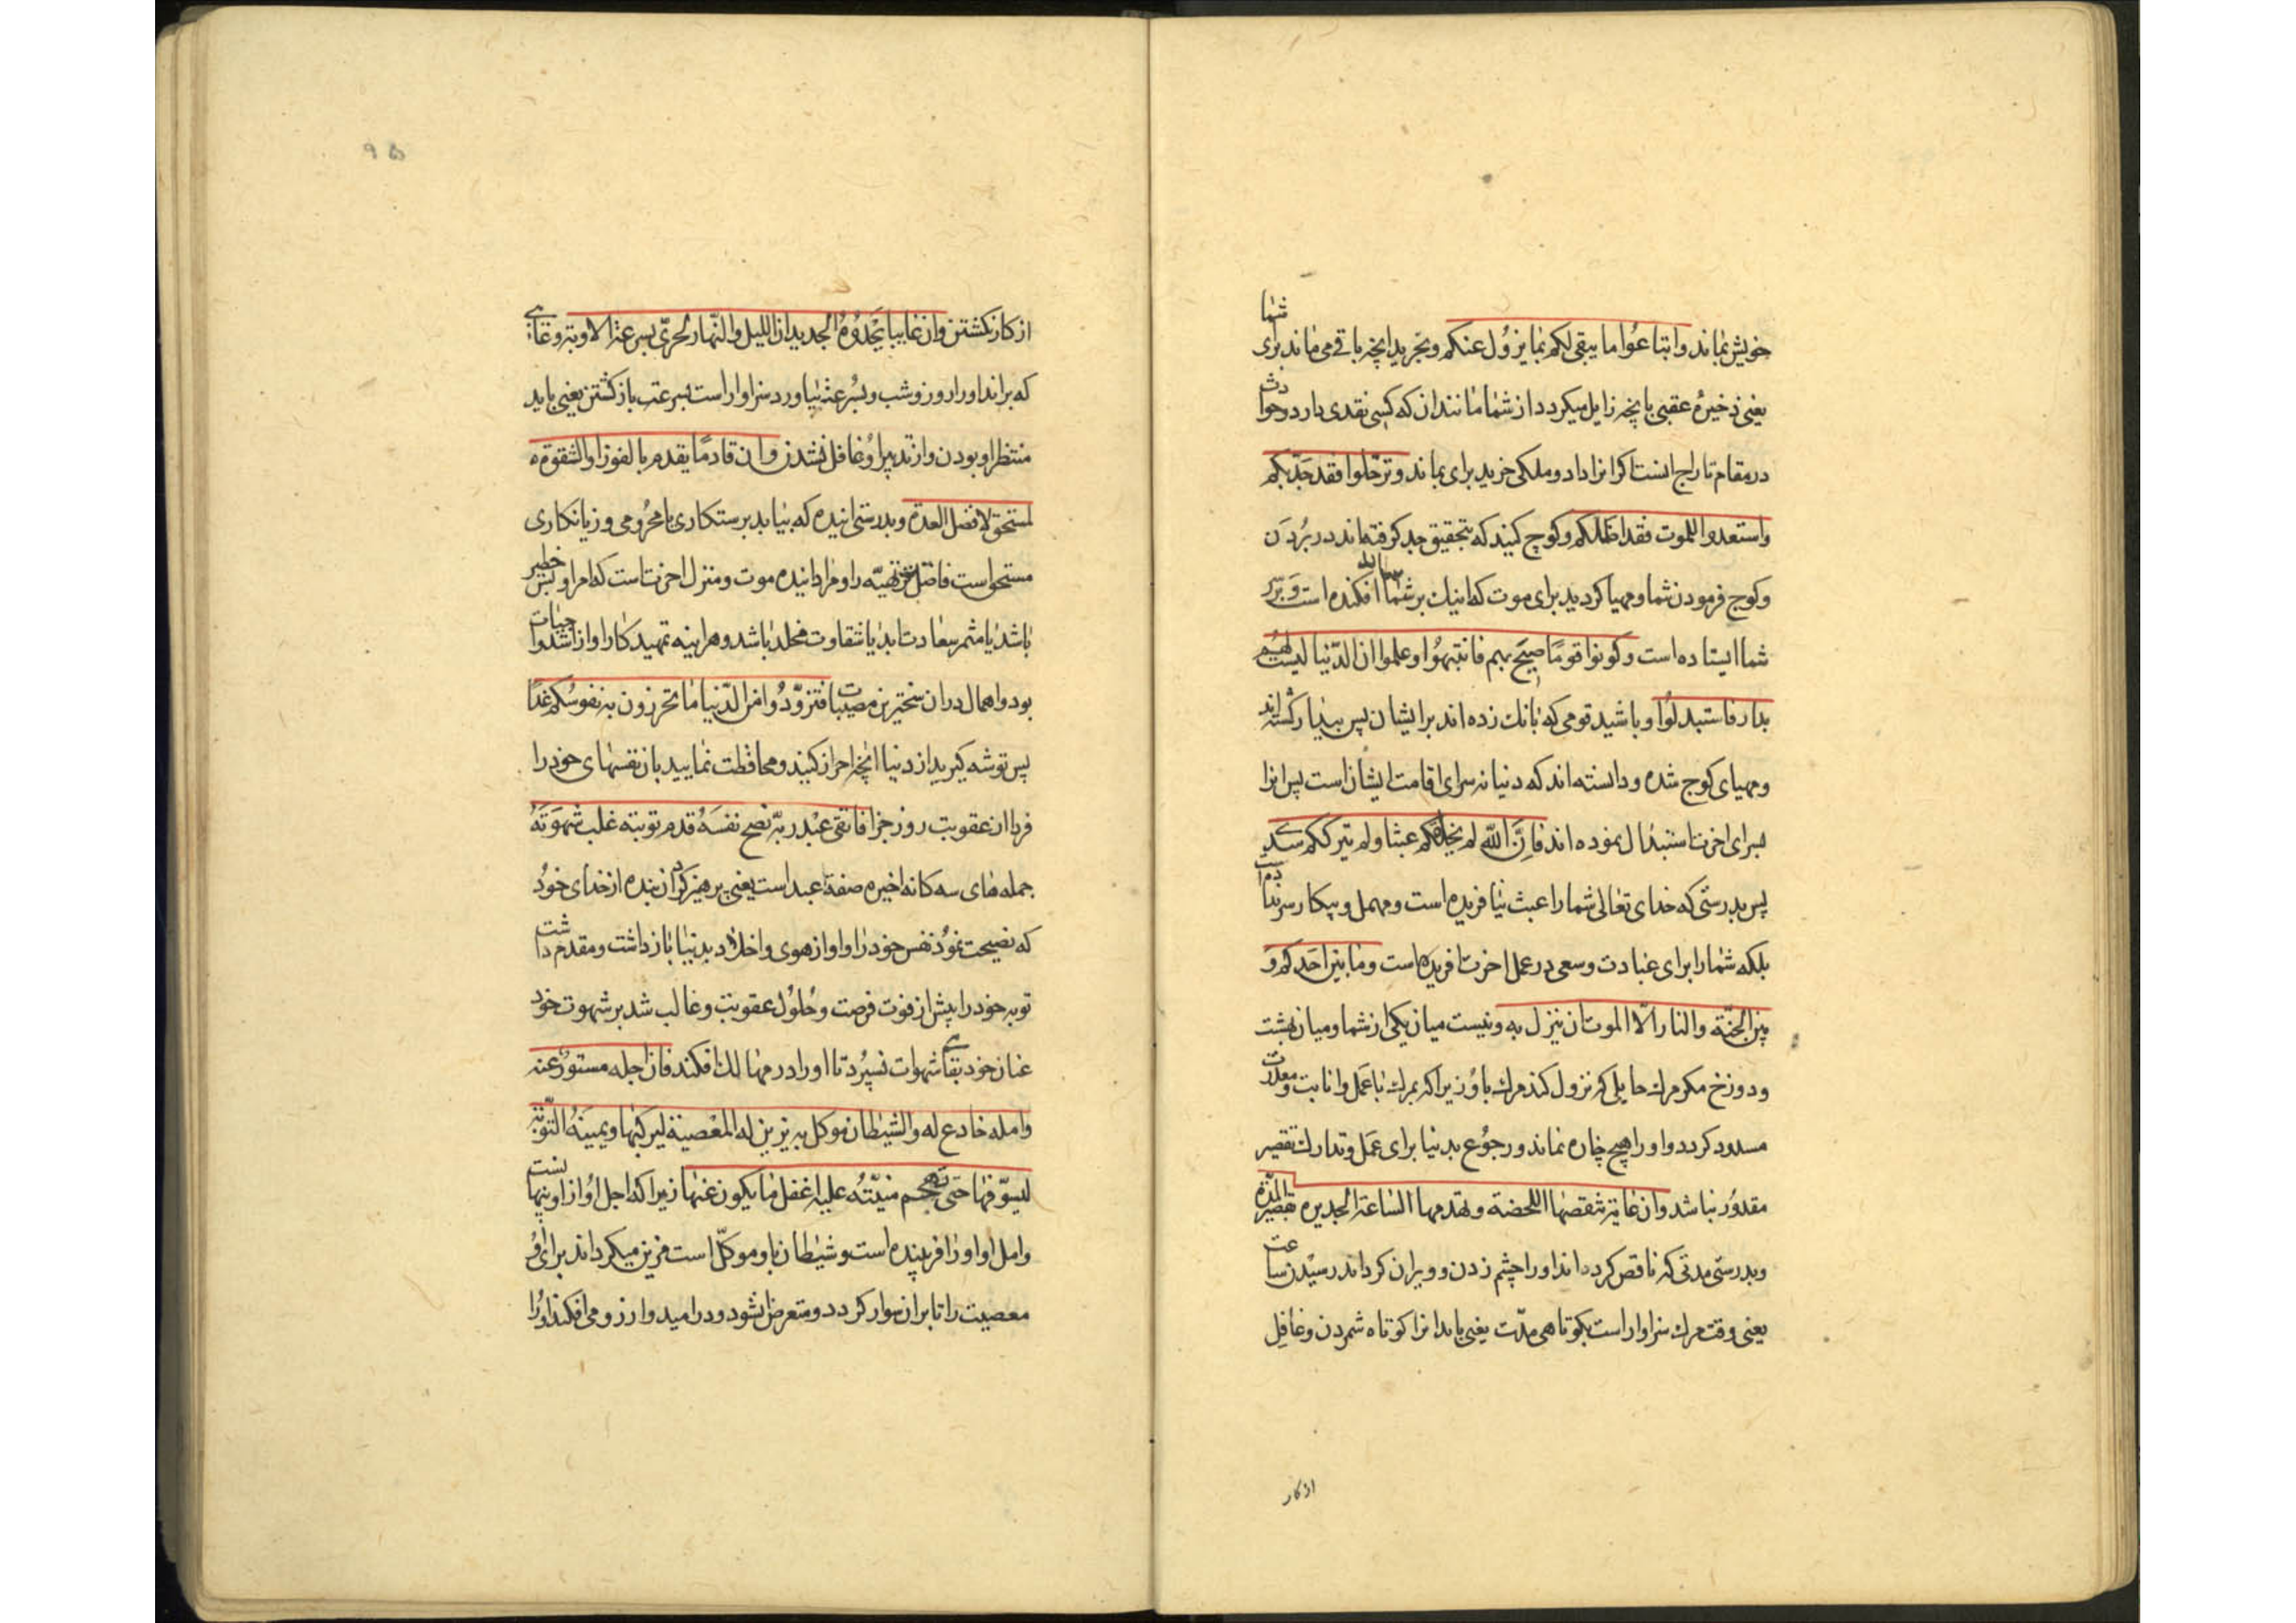 شما
خویش نماند وابتاعُوا ما یبقی لکم بما یزوُل عنکم وبخرید انچه باقی می ماند برای
یعنی ذخیرهٔ عقبی بانچه زایل میکردد از شما مانند ان که کسی نقدی دارد وحوادث
در مقام تاراج انست اکر انرا داد وملکی خرید برای بماند وترحّلوا فقد جَدّ بکم
واستعدوا للموت فقد اظلکم وکوچ کنید که بتحقیق جد کرفته اند در بُردَن
وکوچ فرمودن شما ومهیا کردید برای موت که اینک بر شما سایه افکنده است وَبَرِ سَر
شما ایستاده است وکونوا قومًا صیحَ بهم فانتبهُوا وعلموا ان الدّنیا لیست لهُم
بدار فاستبدلُوا وباشید قومی که بانک زده اند بر ایشان پس بیدار کشته اند
ومهیای کوچ شده ودانسته اند که دنیا نه سرای اقامت ایشان است پس انرا
بسرای اخرت استبدال نموده اند فاِنَّ اللّه لم یخلقکم عبثا ولم یترککم سدی
پس بدرستی که خدای تعالی شما را عبث نیافریده است ومهمل وبیکار سر نداده است
بلکه شما را برای عبادت وسعی در عمل اخرت افریده است وما بین احَدکم وَ
بین الجنّة والنار الّا الموت ان ینزل به ونیست میان یکی از شما ومیان بهشت
ودوزخ مکر مرک حایلی که نزول کند مرک باوُ زیرا که بمرک باب عمل وانابت ومعذرت
مسدود کردد واو را هیچ چاره نماند ورجوُع بدنیا برای عمَل وتدارک تقصیر
مقدوُر نباشد وان غایة تنقصُها اللحضة وتهدمها السّاعة لجدیرة بقصر المُدّة
وبدرستی مدتی که ناقص کرده اند او را چشم زدن وویران کرداند رسیْدن ساعت
یعنی وقت مرک سزاوار است بکوتاهی مدّت یعنی باید انرا کوتاه شمردن وغافِل
از کار
۹۵
از کار نکشتن وان غایبا یَحْدُوهُ الجدیدان اللیل والنّهار لحریّ بسرعة الاوبة وغایبی
که براند او را روز وشب وبسُرعت بیاورد سزاوار است بسرعت باز کشتن یعنی باید
منتظر او بودن واز تدبیر اوُ غافل نشدن وان قادمًا یقدم بالفوز او الشقوة
لمستحق لافضل العدّة وبدرستی اینده که بیاید برستکاری یا محرُومی وزیانکاری
مستحق است فاضل ترین تهیّه را ومراد اینده موت ومنزل اخرتست که امر او بس خطیر
باشد یا مثمر سعادت ابد یا شقاوت مخلد باشد وهر اینه تمهید کار او از اشد واجبات
بود واهمال در ان سختیرین مصیبات فتزوّدُوا من الدّنیا ما تحرزون به نفوسُکم غدًا
پس توشه کیرید از دنیا انچه احراز کنید ومحافظت نمایید بان نفسهای خود را
فردا از عقوبت روز جزا فاتقی عبْد ربّه نصح نفسَهُ قدم توبته غلب شهوَتَهُ
جمله های سه کانه اخیره صفة عبد است یعنی پرهیز کرد ان بنده از خدای خوُد
که نصیحت نموُد نفس خود را واو از هوی واخلاد بدنیا باز داشت ومقدم داشت
توبه خود را پیش از فوت فرصت وحُلوُل عقوبت وغالب شد بر شهوت خود
عنان خود بقای شهوات نسپُرد تا او را در مهالک افکند فان اجله مستوُر عنه
وامله خادع له والشیطان موکل به یزین له المعْصیة لیرکبها ویمیَنهُ التّوبَة
لیسوّفها حتی تهجم منیّتُه علیه اغفل ما یکون عنها زیرا که اجل اوُ از او پنهانست
وامل او اوُ را فریبنده است وشیطان باو موکّل است مزین میکرداند برای اوُ
معصیت را تا بران سوار کردد ومتعرض شود ودر امید وارزو می افکند اوُ را